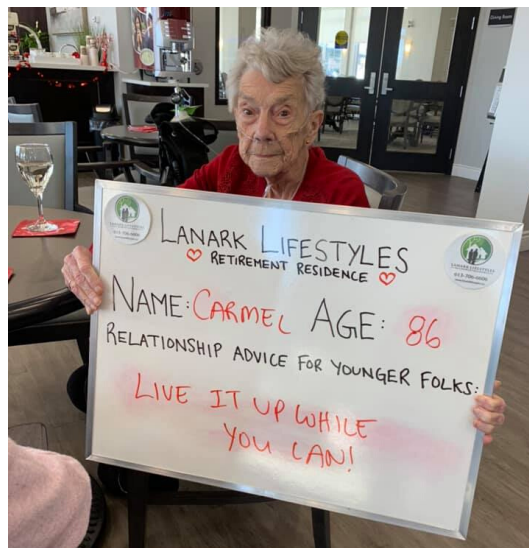 Dining Room
LANARK LIFESTYLES
RETIREMENT RESIDENCE
NAME: CARMEL AGE: 86
RELATIONSHIP ADVICE FOR YOUNGER FOLKS:
LIVE IT UP WHILE
YOU CAN!